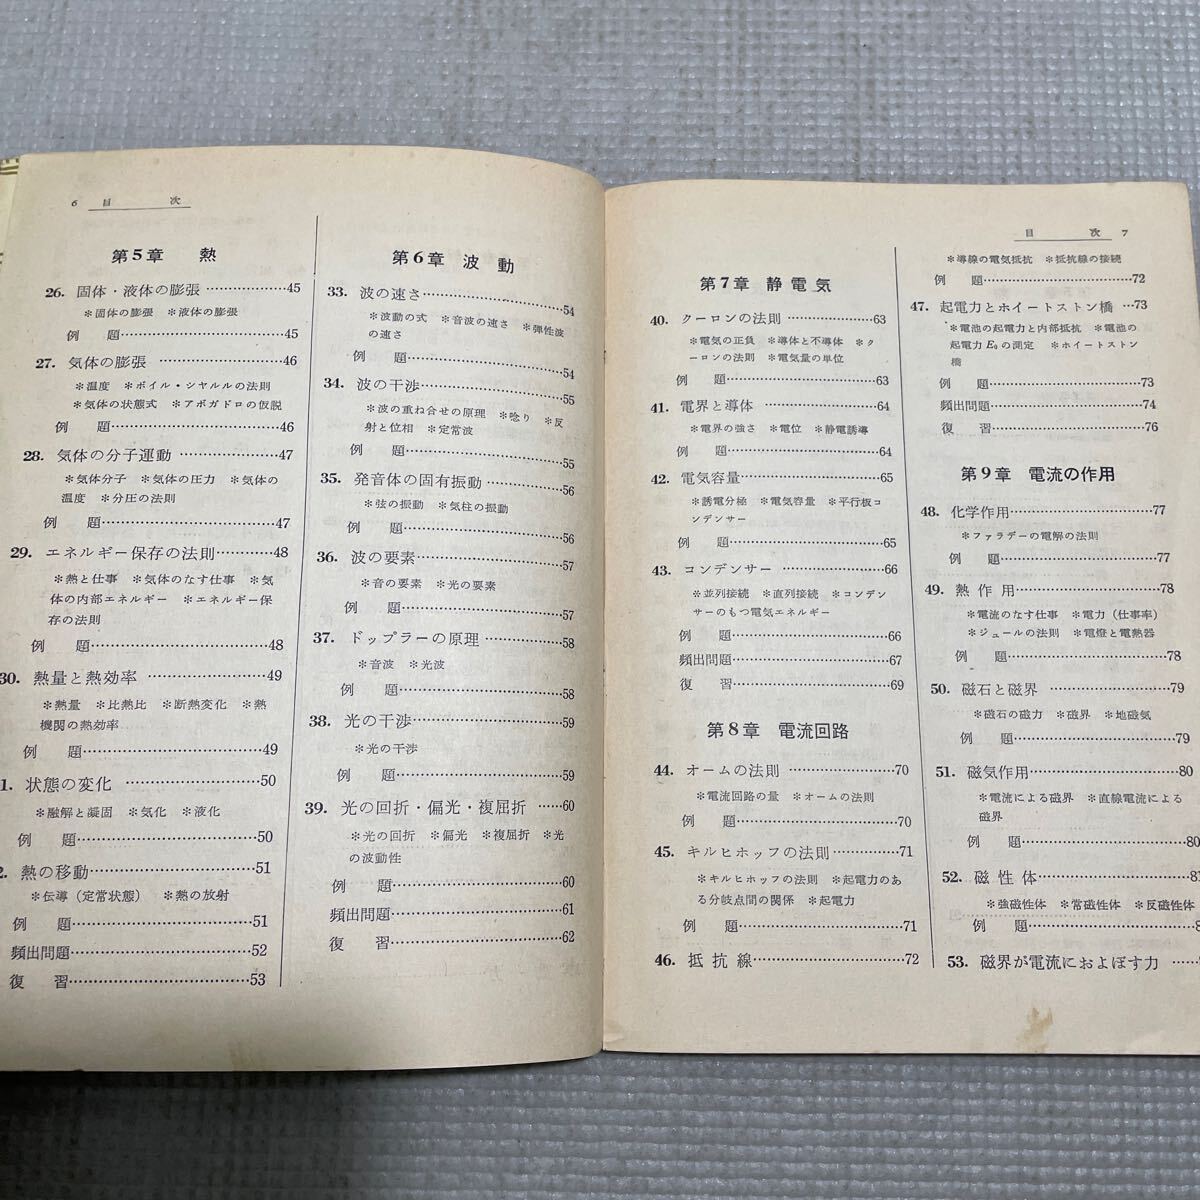 6 目 次
第5章 熱
26. 固体・液体の膨張……………45
＊固体の膨張 ＊液体の膨張
例 題……………………………45
27. 気体の膨張…………………46
＊温度 ＊ボイル・シヤルルの法則
＊気体の状態式 ＊アボガドロの仮説
例 題……………………………46
28. 気体の分子運動……………47
＊気体分子 ＊気体の圧力 ＊気体の
温度 ＊分圧の法則
例 題……………………………47
29. エネルギー保存の法則………48
＊熱と仕事 ＊気体のなす仕事 ＊気
体の内部エネルギー ＊エネルギー保
存の法則
例 題……………………………48
30. 熱量と熱効率………………49
＊熱量 ＊比熱比 ＊断熱変化 ＊熱
機関の熱効率
例 題……………………………49
1. 状態の変化…………………50
＊融解と凝固 ＊気化 ＊液化
例 題……………………………50
2. 熱の移動……………………51
＊伝導（定常状態） ＊熱の放射
例 題……………………………51
頻出問題…………………………52
復 習……………………………53
第6章 波 動
33. 波の速さ……………………54
＊波動の式 ＊音波の速さ ＊弾性波
の速さ
例 題……………………………54
34. 波の干渉……………………55
＊波の重ね合せの原理 ＊唸り ＊反
射と位相 ＊定常波
例 題……………………………55
35. 発音体の固有振動…………56
＊弦の振動 ＊気柱の振動
例 題……………………………56
36. 波の要素……………………57
＊音の要素 ＊光の要素
例 題……………………………57
37. ドップラーの原理…………58
＊音波 ＊光波
例 題……………………………58
38. 光の干渉……………………59
＊光の干渉
例 題……………………………59
39. 光の回折・偏光・複屈折……60
＊光の回折 ＊偏光 ＊複屈折 ＊光
の波動性
例 題……………………………60
頻出問題…………………………61
復 習……………………………62
目 次 7
第7章 静電気
40. クーロンの法則……………63
＊電気の正負 ＊導体と不導体 ＊ク
ーロンの法則 ＊電気量の単位
例 題……………………………63
41. 電界と導体…………………64
＊電界の強さ ＊電位 ＊静電誘導
例 題……………………………64
42. 電気容量……………………65
＊誘電分極 ＊電気容量 ＊平行板コ
ンデンサー
例 題……………………………65
43. コンデンサー………………66
＊並列接続 ＊直列接続 ＊コンデン
サーのもつ電気エネルギー
例 題……………………………66
頻出問題…………………………67
復 習……………………………69
第8章 電流回路
44. オームの法則………………70
＊電流回路の量 ＊オームの法則
例 題……………………………70
45. キルヒホッフの法則………71
＊キルヒホッフの法則 ＊起電力のあ
る分岐点間の関係 ＊起電力
例 題……………………………71
46. 抵抗線………………………72
＊導線の電気抵抗 ＊抵抗線の接続
例 題……………………………72
47. 起電力とホイートストン橋…73
＊電池の起電力と内部抵抗 ＊電池の
起電力E₀の測定 ＊ホイートストン
橋
例 題……………………………73
頻出問題…………………………74
復 習……………………………76
第9章 電流の作用
48. 化学作用……………………77
＊ファラデーの電解の法則
例 題……………………………77
49. 熱作用………………………78
＊電流のなす仕事 ＊電力（仕事率）
＊ジュールの法則 ＊電燈と電熱器
例 題……………………………78
50. 磁石と磁界…………………79
＊磁石の磁力 ＊磁界 ＊地磁気
例 題……………………………79
51. 磁気作用……………………80
＊電流による磁界 ＊直線電流による
磁界
例 題……………………………80
52. 磁性体………………………81
＊強磁性体 ＊常磁性体 ＊反磁性体
例 題……………………………8
53. 磁界が電流におよぼす力……